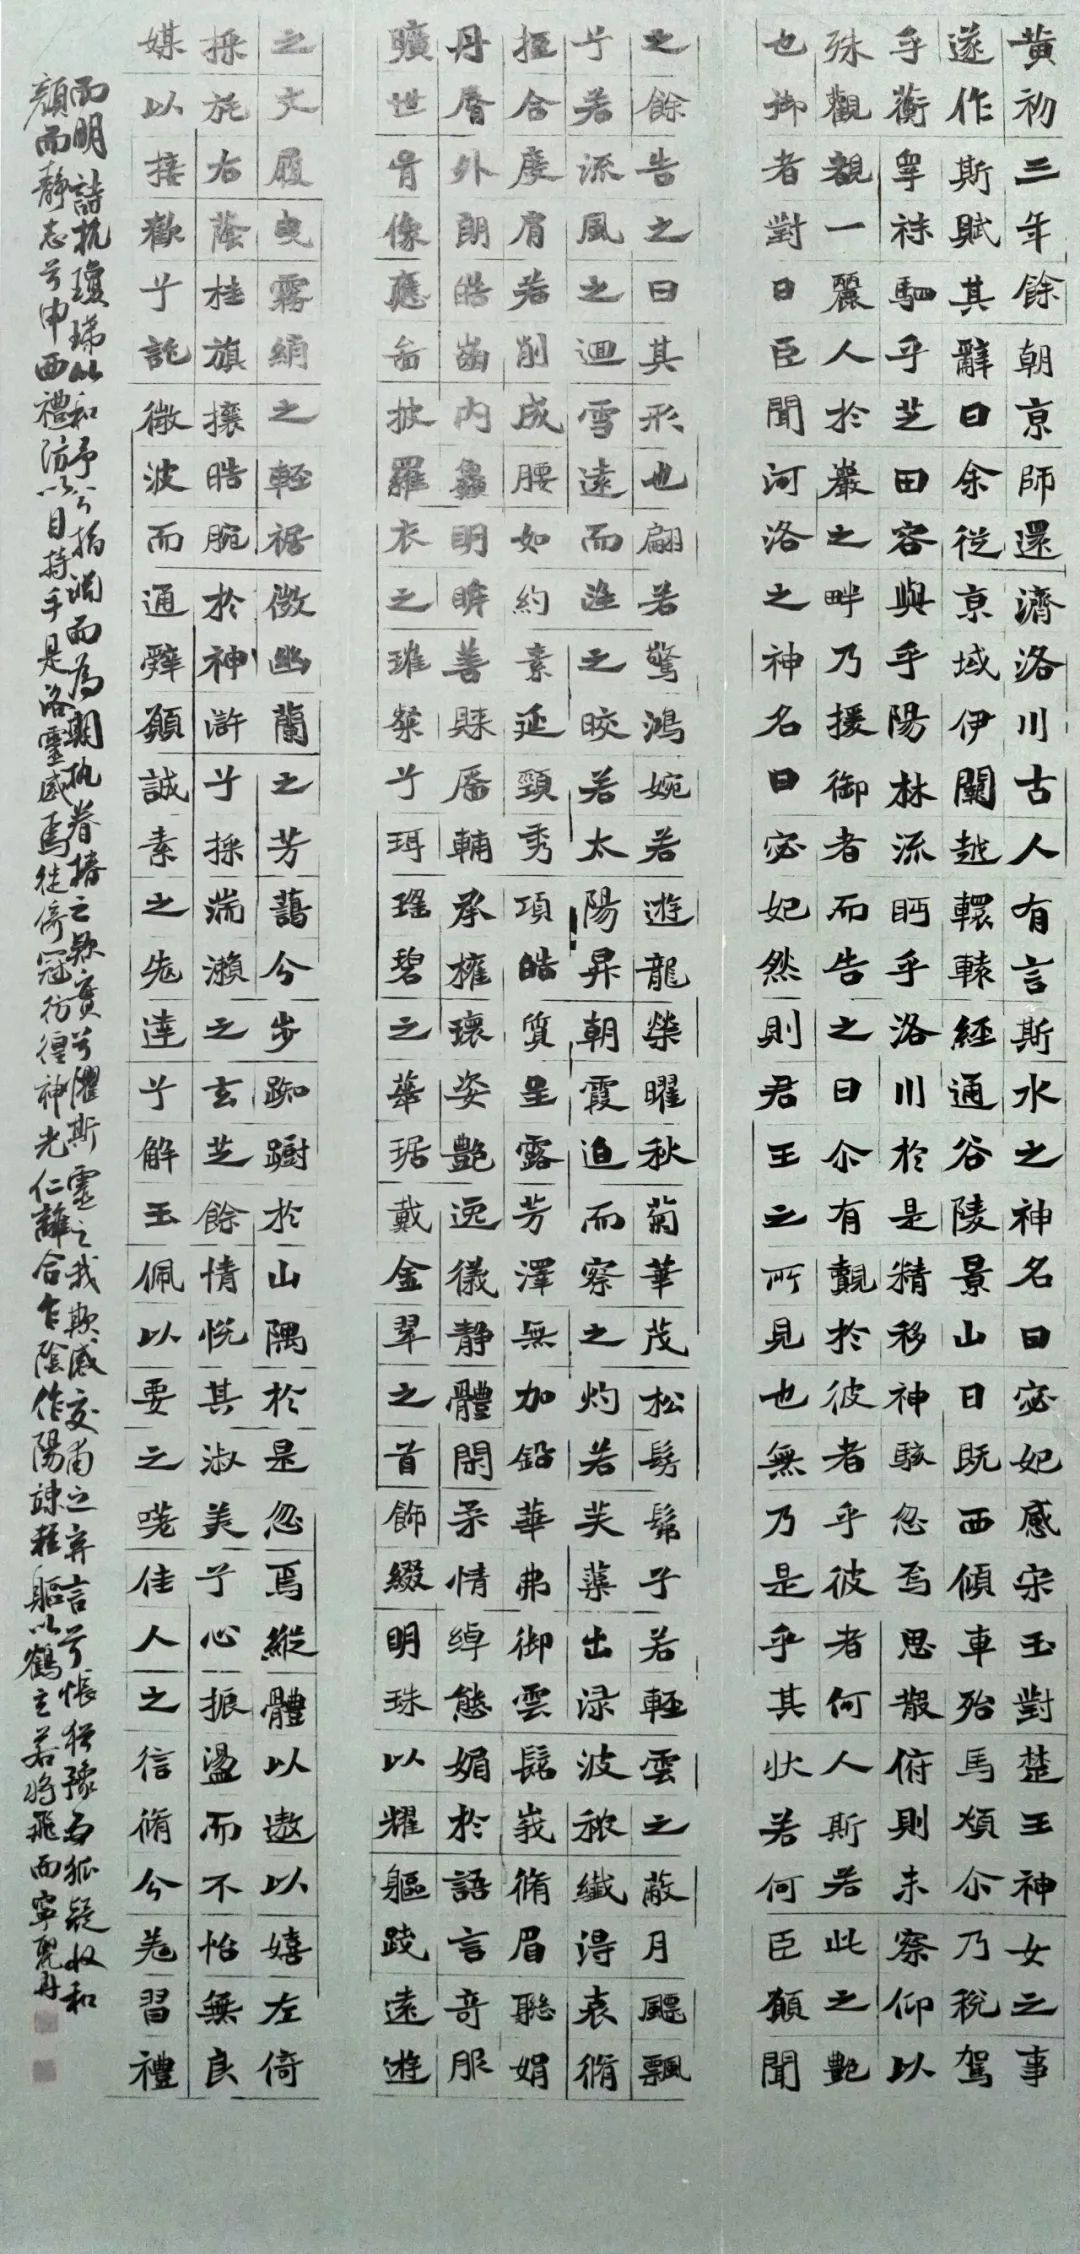 黄初三年余朝京師還濟洛川古人有言斯水之神名曰宓妃感宋玉對楚王神女之事
遂作斯賦其辭曰余從京域伊闕越轘轅經通谷陵景山日既西傾車殆馬煩尒乃稅駕
乎蘅皋秣駟乎芝田容與乎陽林流眄乎洛川於是精移神駭忽焉思散俯則未察仰以
殊觀覩一麗人於巖之畔乃援御者而告之曰尒有覿於彼者乎彼者何人斯若此之艷
也御者對曰臣聞河洛之神名曰宓妃然則君王之所見也無乃是乎其状若何臣願聞
之餘告之曰其形也翩若驚鴻婉若遊龍榮曜秋菊華茂松髣髴子若輕雲之蔽月飄飄
兮若流風之迴雪遠而望之晈若太陽昇朝霞迫而察之灼若芙蕖出渌波穠纖得衷脩
短合度肩若削成腰如約素延頸秀項皓質呈露芳澤無加鉛華弗御雲髻峩脩眉聯娟
丹唇外朗皓齒内鮮明眸善睞靨輔承權瓌姿艷逸儀静體閑柔情綽態媚於語言奇服
曠世骨像應圖披羅衣之璀粲兮珥瑤碧之華琚戴金翠之首飾綴明珠以耀軀踐遠遊
之文履曳霧綃之輕裾微幽蘭之芳藹兮步踟躕於山隅於是忽焉縱體以遨以嬉左倚
採旄右蔭桂旗攘皓腕於神滸兮採湍瀨之玄芝餘情悦其淑美兮心振盪而不怡無良
媒以接歡兮託微波而通辭願誠素之先達兮解玉佩以要之嗟佳人之信脩兮羌習禮
而明詩抗瓊珶以和予兮指淵而為期執眷眷之款實兮懼斯靈之我欺感交甫之棄言兮悵猶豫而狐疑收和
顏而静志兮申西禮防以自持乎是洛靈感焉徙倚冠彷徨神光仁離合乍陰作陽竦輕軀以鶴立若將飛而